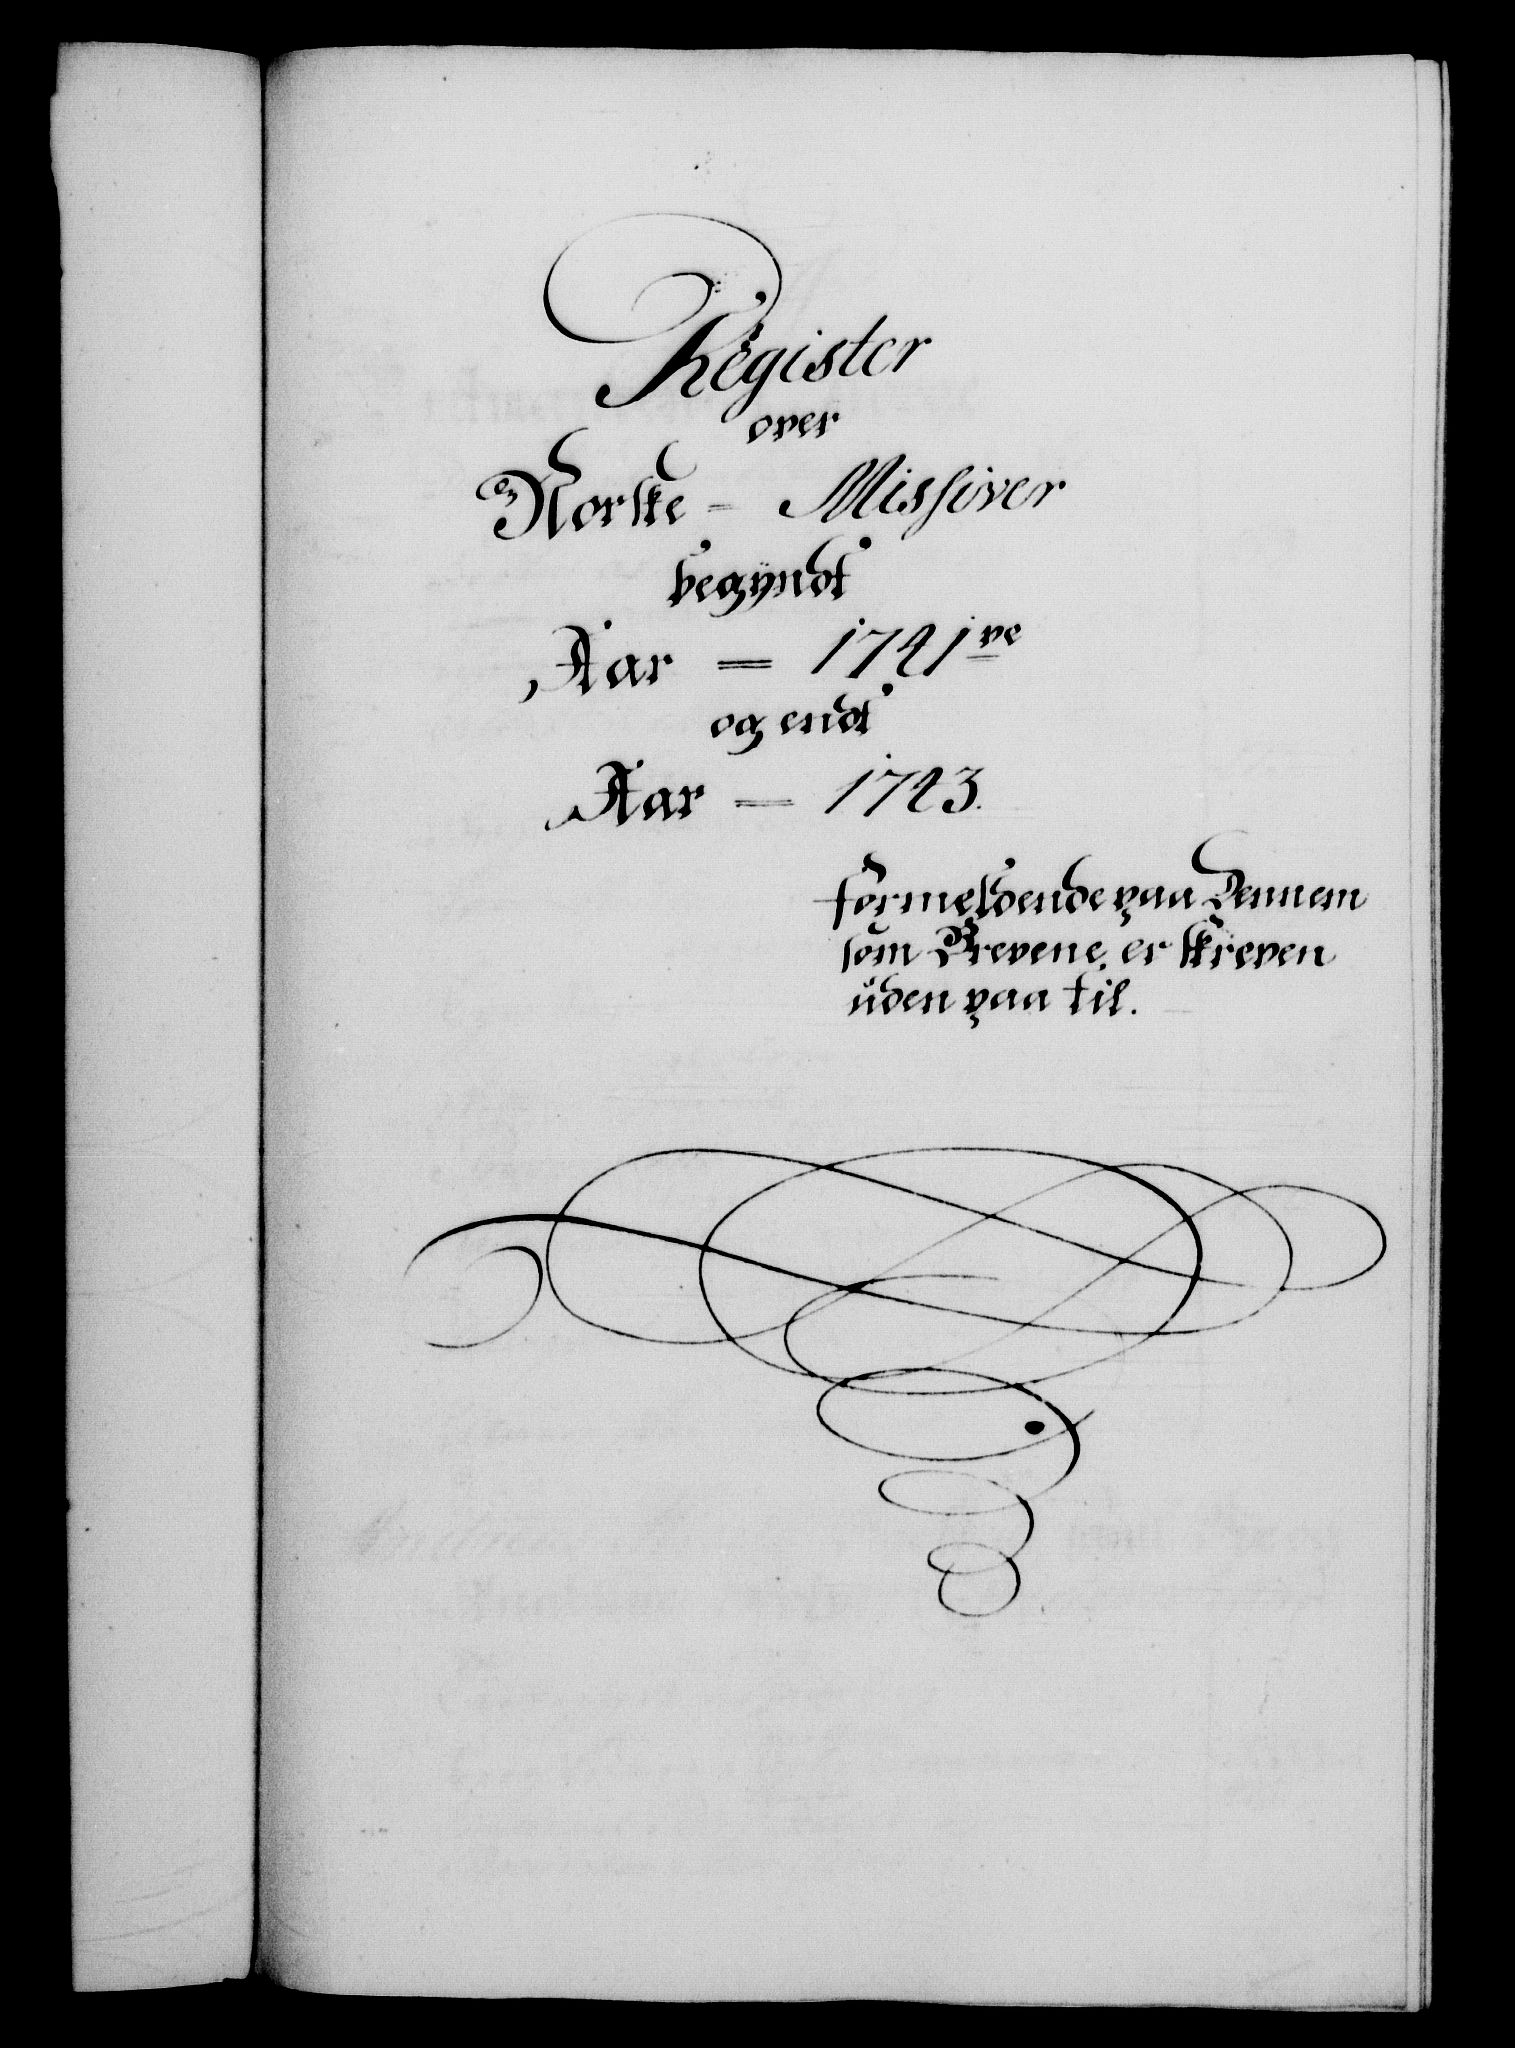 Register
over
Norske = Missiver
begyndt
Aar = 1741ve
og endt
Aar = 1743.
formeldende paa Dennem
som Brevene er skreven
uden paa til.